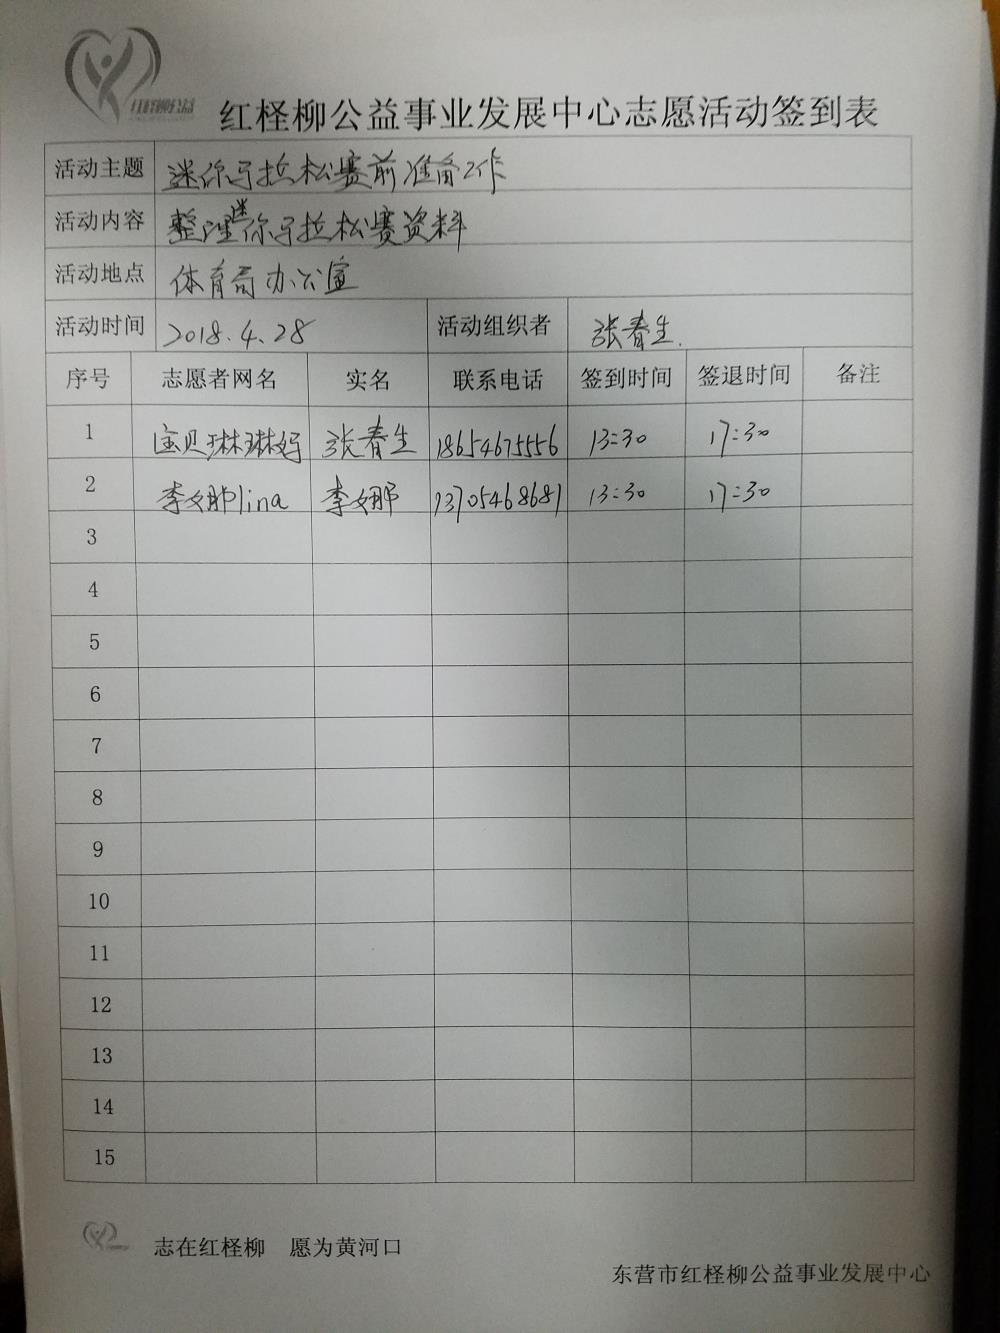 红柽柳公益
红柽柳公益事业发展中心志愿活动签到表
活动主题 迷你马拉松赛前准备工作
活动内容 整理迷你马拉松赛资料
活动地点 体育局办公室
活动时间 2018.4.28 活动组织者 张春生.
序号 志愿者网名 实名 联系电话 签到时间 签退时间 备注
1 宝贝琳琳妈 张春生 18654675556 13:30 17:30
2 李娜lina 李娜 13705468681 13:30 17:30
3
4
5
6
7
8
9
10
11
12
13
14
15
志在红柽柳 愿为黄河口
东营市红柽柳公益事业发展中心